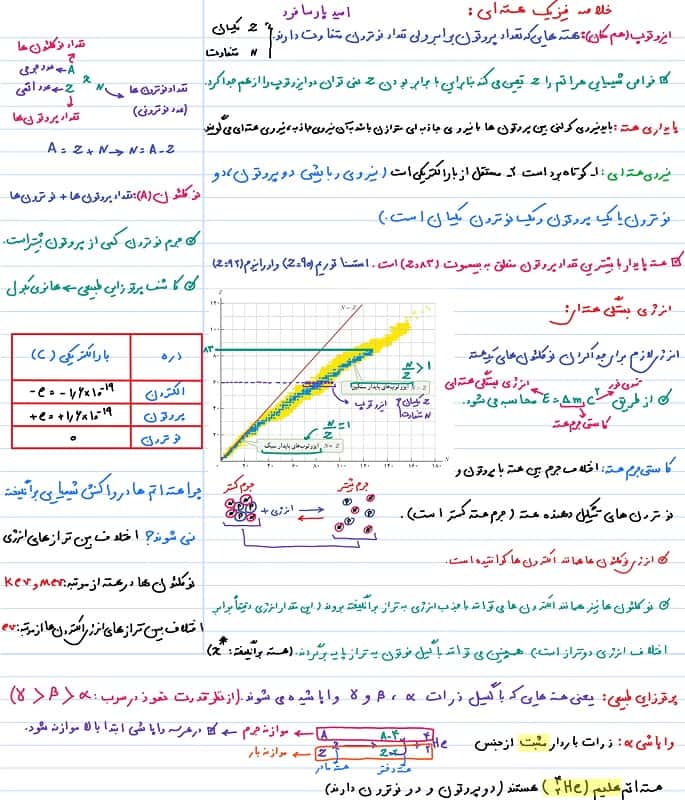 خلاصه فیزیک هسته ای:
امید پارسا فرد
ایزوتوپ (هم مکان): هسته هایی که تعداد پروتون برابر ولی تعداد نوترون متفاوت دارند.
Z یکسان
N متفاوت
خواص شیمیایی هر اتم را Z تعیین می کند بنابراین با برابر بودن Z نمی توان دو ایزوتوپ را از هم جدا کرد.
پایداری هسته: باید نیروی کولنی بین پروتون ها با نیروی جاذبه ای متوازن باشد به آن نیروی جاذبه، نیروی هسته ای می گویند
نیروی هسته ای: ۱- کوتاه برد است ۲- مستقل از بار الکتریکی است (نیروی ربایشی دو پروتون، دو
نوترون یا یک پروتون و یک نوترون یکسان است.)
هسته پایدار با بیشترین تعداد پروتون متعلق به بیسموت (Z=۸۳) است. استثنا توریم (Z=۹۰) و اورانیوم (Z=۹۲)
تعداد نوکلئون ها
عدد جرمی ← A
عدد اتمی ← Z
X N
تعداد نوترون ها
(عدد نوترونی)
تعداد پروتون ها
A = Z + N → N = A - Z
نوکلئون (A): تعداد پروتون ها + نوترون ها
جرم نوترون کمی از پروتون بیشتر است.
کاشف پرتوزایی طبیعی ← هانری بکرل
ذره | بار الکتریکی (C)
الکترون | -e = -۱٫۶×۱۰^-۱۹
پروتون | +e = +۱٫۶×۱۰^-۱۹
نوترون | ۰
چرا هسته اتم ها در واکنش شیمیایی برانگیخته
نمی شوند؟ اختلاف بین ترازهای انرژی
نوکلئون ها در هسته از مرتبه: keV و MeV
اختلاف بین ترازهای انرژی الکترون ها از مرتبه: eV
Z
N = Z
۸۳
N/Z > 1
ایزوتوپ‌های پایدار سنگین
ایزوتوپ
Z یکسان
N متفاوت
N/Z = 1
ایزوتوپ‌های پایدار سبک
۰ ۲۰ ۴۰ ۶۰ ۸۰ ۱۰۰ ۱۲۰ ۱۴۰ ۱۶۰ ۱۸۰
N
انرژی بستگی هسته ای:
انرژی لازم برای جدا کردن نوکلئون های یک هسته
انرژی بستگی هسته ای
تندی نور
از طریق E = Δm c² محاسبه می شود.
کاستی جرم هسته
کاستی جرم هسته: اختلاف جرم بین هسته با پروتون و
نوترون های تشکیل دهنده هسته (جرم هسته کمتر است).
جرم کمتر
جرم بیشتر
+ انرژی
انرژی نوکلئون ها همانند الکترون ها کوانتیده است.
نوکلئون ها نیز همانند الکترون ها می تواند با جذب انرژی به تراز برانگیخته بروند (این مقدار انرژی دقیقاً برابر
اختلاف انرژی دو تراز است) همچنین می تواند با گسیل فوتون به تراز پایه برگردند. (هسته برانگیخته: X*)
پرتوزایی طبیعی: یعنی هسته هایی که با گسیل ذرات α ، β و γ واپاشیده می شوند. (از نظر قدرت نفوذ در سرب: γ > β > α)
واپاشی α: ذرات باردار مثبت از جنس
A → A-۴ ۴
Z Z-۲ ۲ He
موازنه جرم
موازنه بار
هسته مادر
هسته دختر
در هر سه واپاشی ابتدا بالا موازنه شود.
هسته اتم هلیم (⁴₂He) هستند (دو پروتون و دو نوترون دارند)